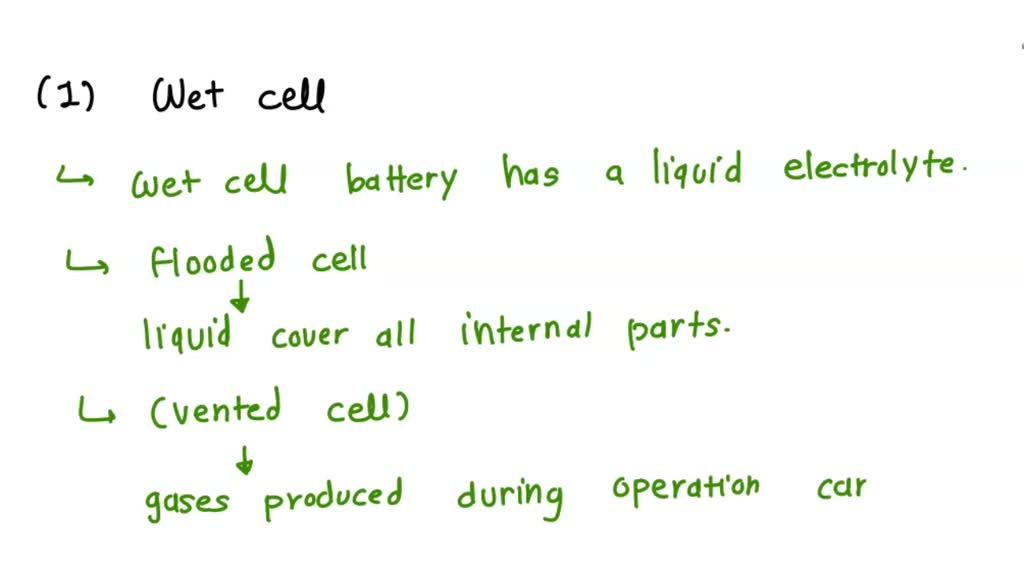 (1) Wet cell
↳ wet cell battery has a liquid electrolyte.
↳ flooded cell
↓
liquid cover all internal parts.
↳ (vented cell)
↓
gases produced during operation car